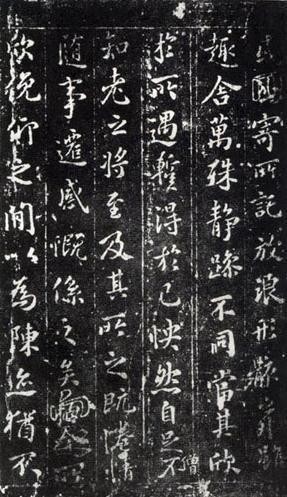 或因寄所託放浪形骸之外雖
趣舍萬殊靜躁不同當其欣
於所遇蹔得於己怏然自足不
僧
知老之將至及其所之既惓情
隨事遷感慨係之矣向之所
欣俛仰之閒以為陳迹猶不